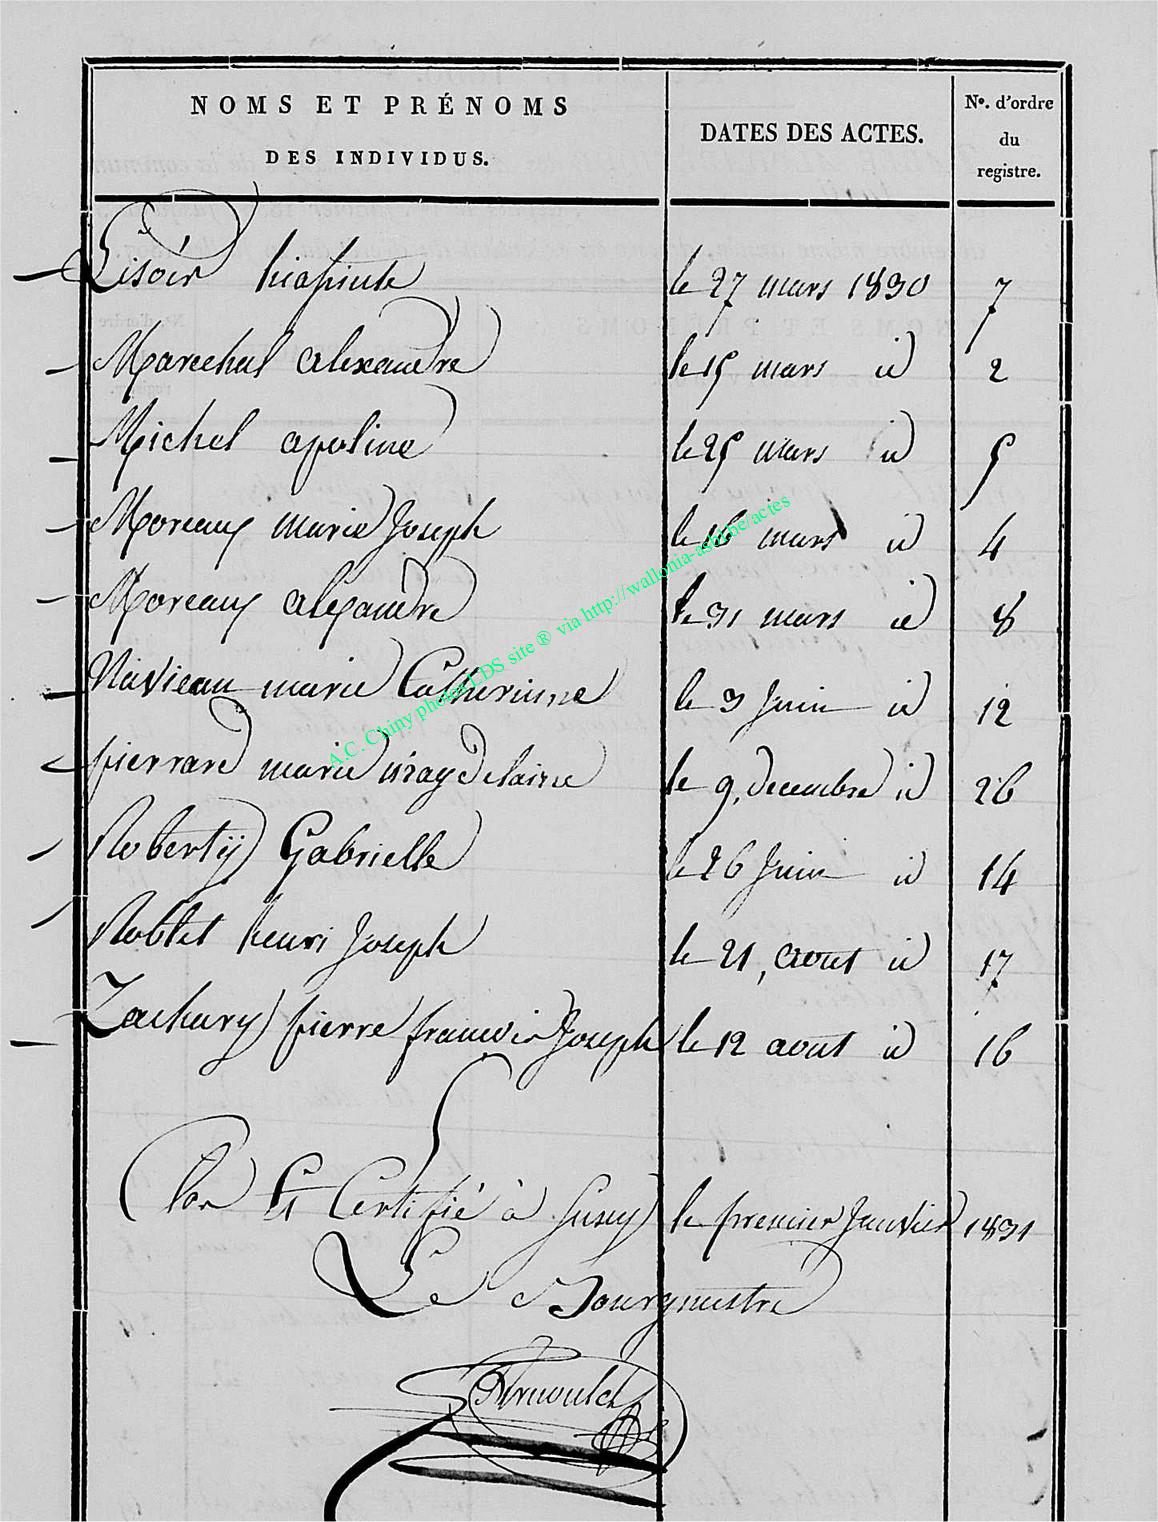 NOMS ET PRÉNOMS
DES INDIVIDUS.
DATES DES ACTES.
No. d'ordre
du
registre.
Lisoir hiasinte le 27 mars 1830 7
Marechal alexandre le 15 mars id 2
Michel apoline le 25 mars id 5
Moreaux marie Joseph le 16 mars id 4
Moreaux alexandre le 31 mars id 8
Navieau marie Catherinne le 3 Juin id 12
pierrard marie le 9, decembre id 26
Robertÿ Gabrielle le 26 Juin id 14
Noblet henri Joseph le 21, aout id 17
Zachary pierre francois Joseph le 12 aout id 16
Clos et Certifié à le premier Janvier 1831
Le Bourgmestre
A.C. Chiny photos LDS site ® via http://wallonia-asbl.be/actes